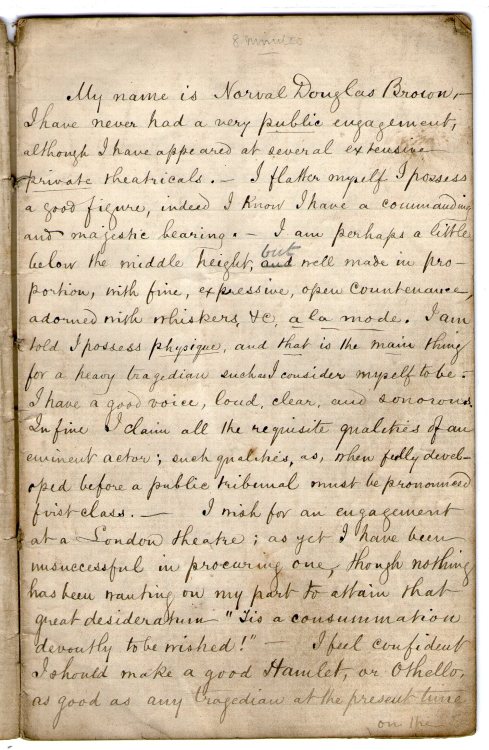 8 Minutes
My name is Norval Douglas Brown,—
I have never had a very public engagement,
although I have appeared at several extensive
private theatricals. — I flatter myself I possess
a good figure, indeed I know I have a commanding
and majestic bearing. — I am perhaps a little
below the middle height, and but well made in pro-
portion, with fine, expressive, open countenance,
adorned with whiskers, &c, a la mode. I am
told I possess physique, and that is the main thing
for a heavy tragedian such as I consider myself to be.
I have a good voice, loud, clear, and sonorous.
In fine I claim all the requisite qualities of an
eminent actor; such qualities, as, when fully devel-
oped before a public tribunal must be pronounced
first class. — I wish for an engagement
at a London theatre; as yet I have been
unsuccessful in procuring one, though nothing
has been wanting on my part to attain that
great desideratum "Tis a consummation
devoutly to be wished!" — I feel confident
I should make a good Hamlet, or Othello,
as good as any tragedian at the present time
on the